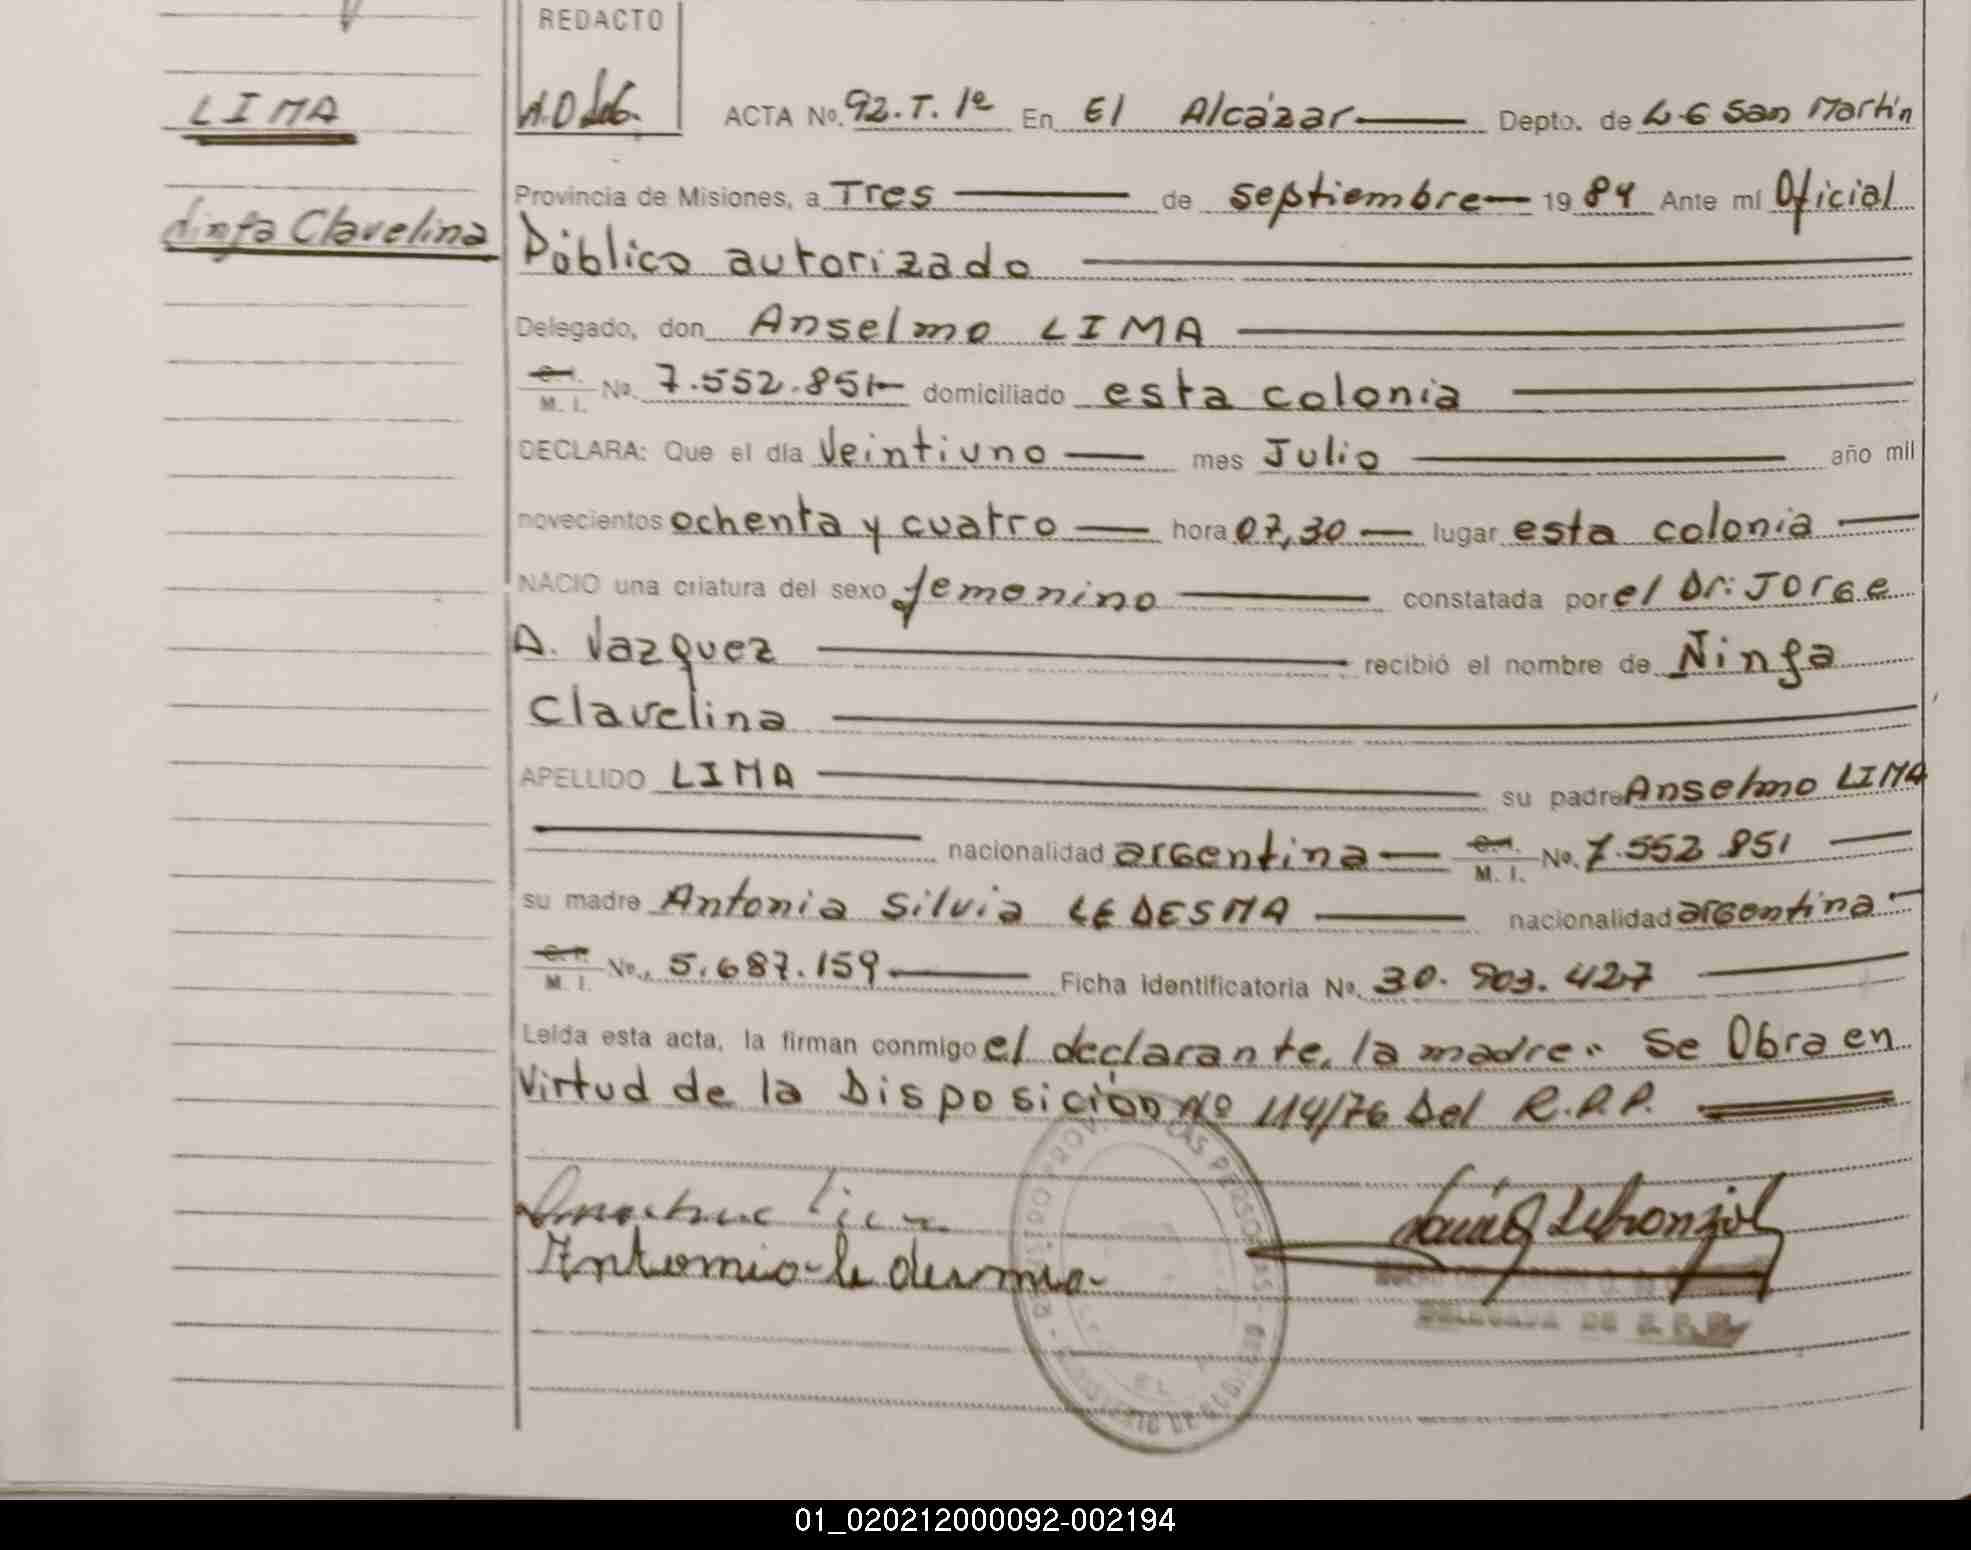 REDACTO
LIMA
ACTA No. 92.T. 1º En El Alcázar Depto. de L. G San Martín
Provincia de Misiones, a Tres de septiembre 1984 Ante mí Oficial
Ninfa Clavelina
Público autorizado
Delegado, don Anselmo LIMA
C.I. M. I. No. 7.552.851 domiciliado esta colonia
DECLARA: Que el día Veintiuno mes Julio año mil
novecientos ochenta y cuatro hora 07,30 lugar esta colonia
NACIO una criatura del sexo femenino constatada por el Dr: JORGE
A. Vazquez recibió el nombre de Ninfa
Clavelina
APELLIDO LIMA su padre Anselmo LIMA
nacionalidad argentina C.I. M. I. No. 7.552 851
su madre Antonia Silvia LEDESMA nacionalidad argentina
C.I. M. I. No. 5.687.159 Ficha Identificatoria No. 30. 903. 427
Leída esta acta, la firman conmigo el declarante, la madre.. Se Obra en
Virtud de la Disposición Nº 114/76 Del R.P.P.
DELEGADA DE R.P.P.
01_020212000092-002194